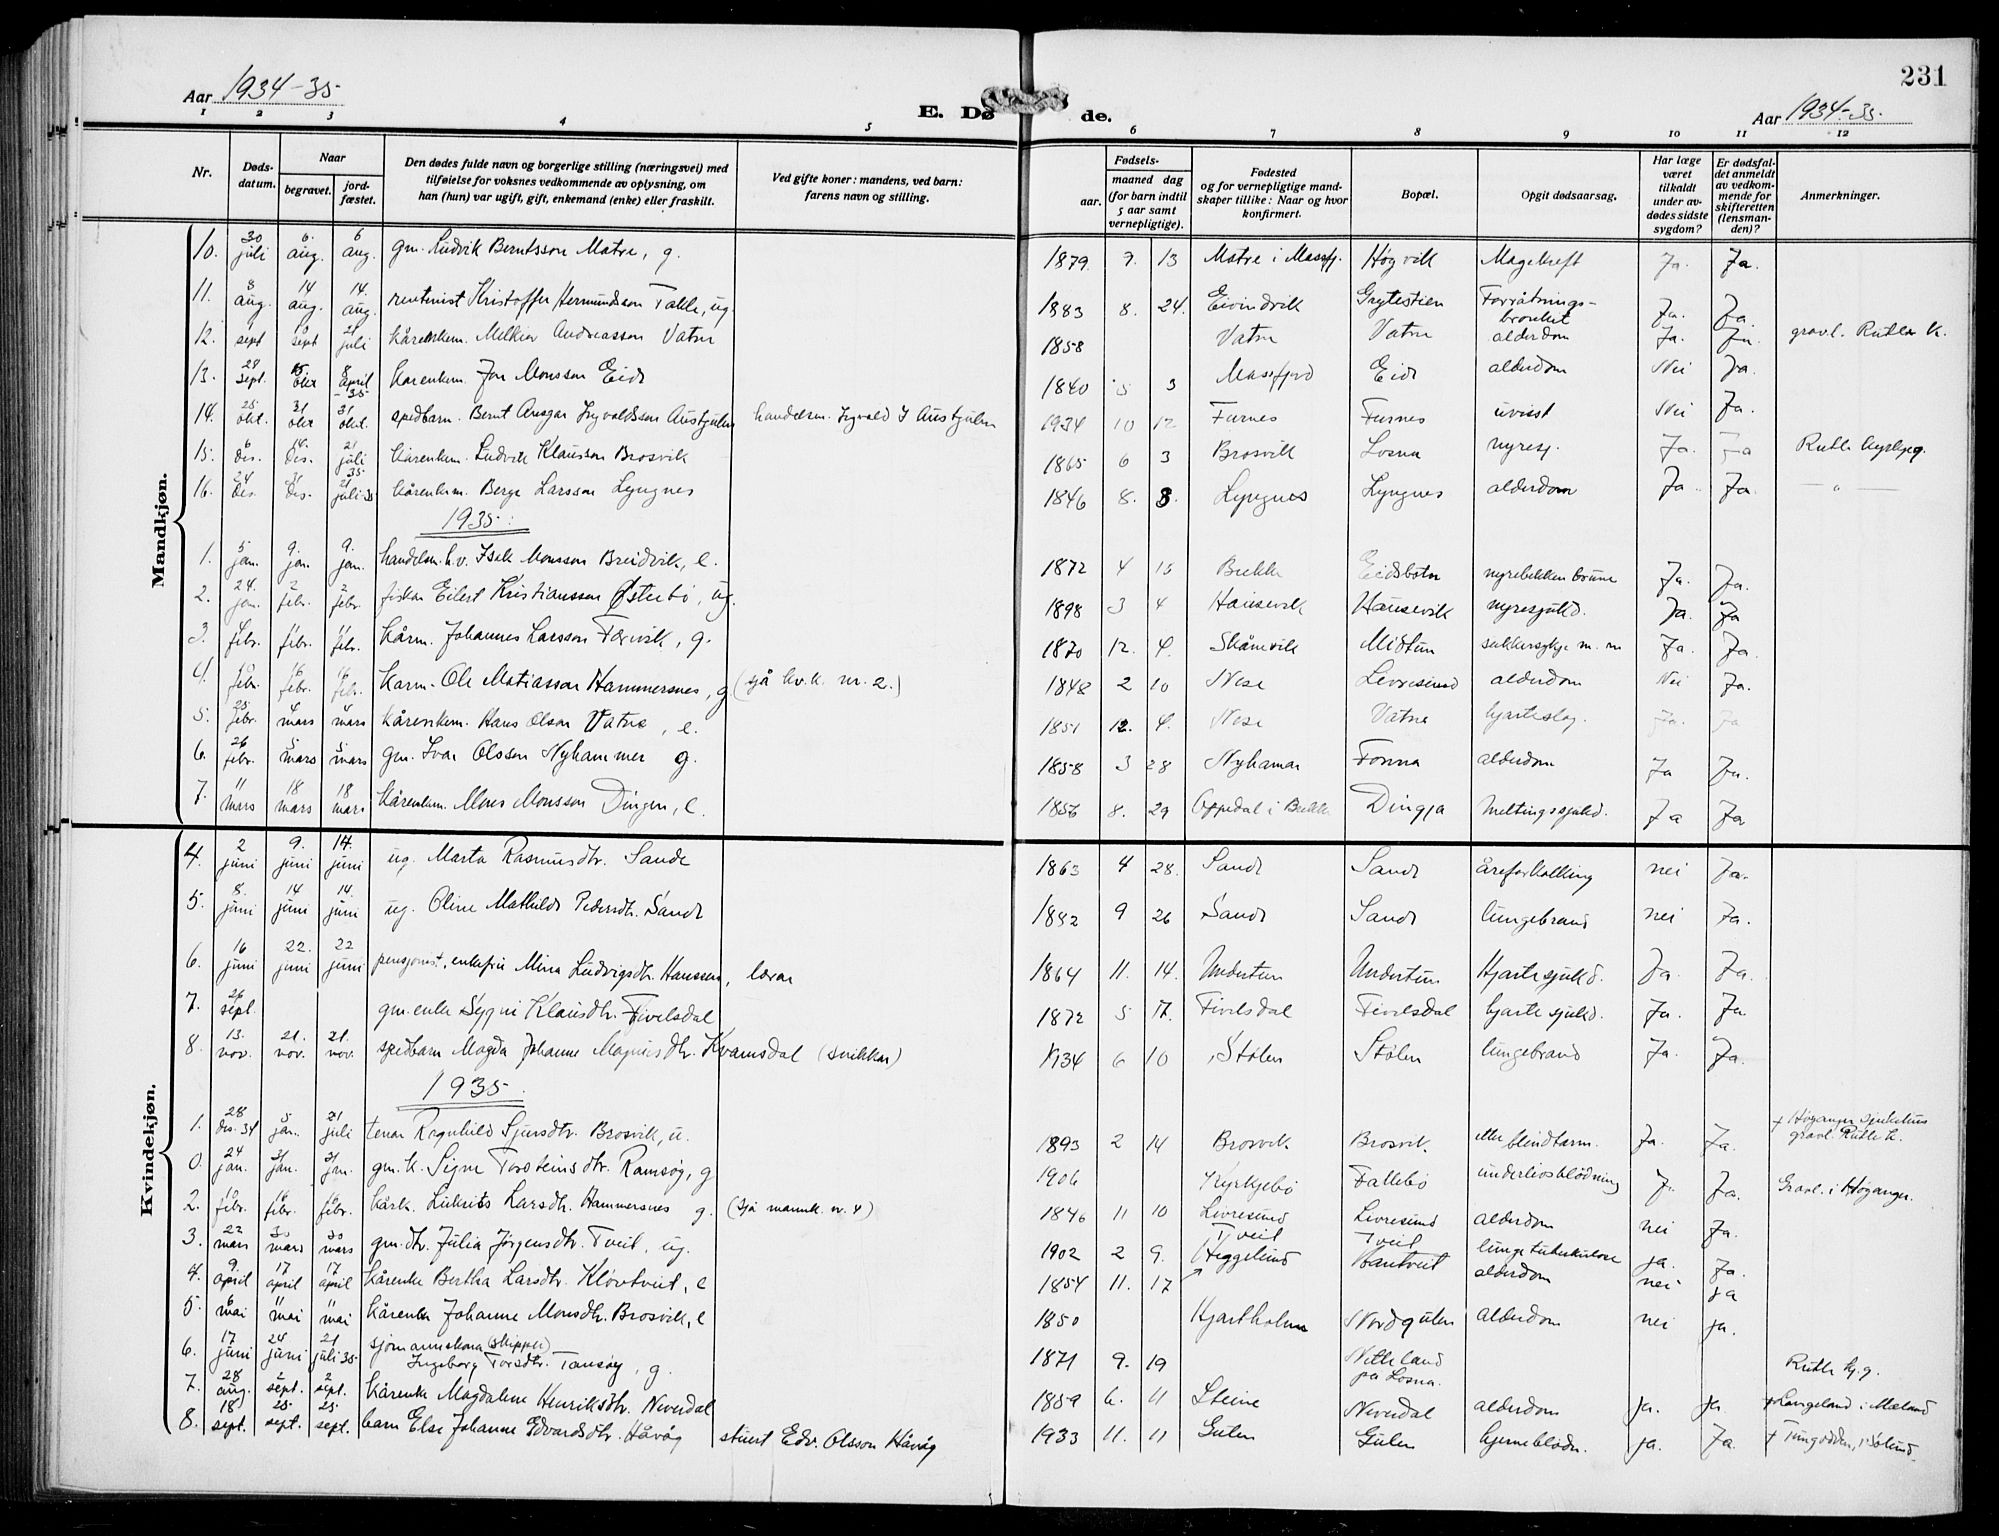 231
Aar 1934-35
E. Dø de.
Aar 1934-35.
1 2 3 4 5 6 7 8 9 10 11 12
Nr. Døds-datum. Naar begravet. jord-fæstet. Den dødes fulde navn og borgerlige stilling (næringsvei) med tilføielse for voksnes vedkommende av oplysning, om han (hun) var ugift, gift, enkemand (enke) eller fraskilt. Ved gifte koner: mandens, ved barn: farens navn og stilling. Fødsels- aar. maaned dag (for barn indtil 5 aar samt vernepligtige). Fødested og for vernepligtige mand-skaper tillike: Naar og hvor konfirmert. Bopæl. Opgit dødsaarsag. Har læge været tilkaldt under av-dødes sidste sygdom? Er dødsfal-det anmeldt av vedkom-mende for skifteretten (lensman-den)? Anmerkninger.
Mandkjøn.
10. 30 juli 6. aug. 6 aug. gm. Ludvik Berntsson Matre, g. 1879. 7. 13 Matre i Massfj. Høgvik Magekreft Ja. Ja.
11. 8 aug. 14 aug. 14. aug. rentenist Kristoffer Hermundson Takle, ug 1883 8. 24. Eivindvik Grytestien Forråtnings-bronkit Ja. Ja.
12. sept sept 21 juli kårenkem. Melkior Andreasson Vatne 1858 Vatne Vatne alderdom Ja. Ja. gravl. Rutle k.
13. 28 sept. 15 okt 8 april -35 kårenkem. Jon Monsson Eide 1840 5 3 Massfjord Eide alderdom Nei Ja.
14. 25 okt. 31 okt 31 okt. spedbarn. Bernt Ansgar Ingvaldsson Austgulen handelsm. Ingvald I Austgulen 1934 10 12 Furnes Furnes uvisst Nei Ja.
15. 6 des. 14. des. 21 juli 35 kårenkem. Ludvik Klausson Brosvik 1865 6 3 Brosvik Losna nyresj. Ja. Ja Rutle kyrkjeg.
16. 24 des. 31 des. 21 juli 35 kårenkem. Berge Larsson Lyngnes 1846 8. 8. Lyngnes Lyngnes alderdom Ja. Ja. — " —
1935.
1. 5 jan. 9. jan. 9. jan. handelsm. h.v. Isak Monsson Breidvik, e. 1872 4 15 Brekke Eidsbotn nyrebekken brune Ja. Ja.
2. 24. jan. 2 febr. 2 febr. fiskar Eilert Kristiansson Østerbø, ug. 1898 3 4 Hausevik Hausevik nyresjukd. Ja. Ja
3. 4 febr. 11 febr. 11 febr. kårm. Johannes Larsson Forvik, g. 1870 12. 4. Skånevik Midtun sukkersykje m. m Ja. Ja.
4. 10 febr. 16 febr. 16 febr. kårm. Ole Matiasson Hammersnes, g (sjå kv.k. nr. 2.) 1848 2 10 Nese Levresund alderdom Nei Ja.
5. 25 febr. 4 mars 4 mars kårenkem. Hans Olson Vatne, e. 1851 12. 4. Nese Vatne hjarteslag Ja. Ja
6. 26 febr. 5 mars 5 mars gm. Ivar Olsson Nyhammer g. 1858 3 28 Nyhamar Fonna alderdom Ja Ja.
7. 11 mars 18 mars 18 mars kårenkem. Mons Monsson Dingen, e. 1856 8. 29 Oppedal i Brekke Dingja Meltingssjukd. Ja Ja
Kvindekjøn.
4. 2 juni 9. juni 14. juni ug. Marta Rasmusdtr. Sande 1863 4 28. Sande Sande åreforkalking nei Ja.
5. 8. juni 14 juni 14. juni ug. Oline Mathilde Pedersdtr. Sande 1882 9 26 Sande Sande lungebrand nei Ja.
6. 16 juni 22. juni 22 juni pensjonist, enkefru Mina Ludvigsdtr. Hanssen, lærar 1864 11. 14. Undertun Undertun Hjartesjukd. Ja. Ja.
7. 26 sept. gm.enke Sygni Klausdtr. Fivelsdal 1872 5 17. Fivelsdal Fivelsdal hjartesjukd. Ja. Ja.
8. 13. nov. 21. nov. 21. nov. spedbarn Magda Johanne Magnusdtr. Kvamsdal (snikkar) 1934 6 10 Stølen Stølen lungebrand Ja. Ja.
1935.
1. 28 des. 34 5 jan. 21 juli tenar Ragnhild Sjursdtr. Brosvik, u. 1893 2 14 Brosvik Brosvik. etter blindtarm. Ja. Ja. + Høyanger Sjukehus gravl. Rutle k.
0. 24 jan. 31 jan. 31 jan. gm.k. Signe Torsteinsdtr. Ramsøy, g 1906 Kyrkjebø Fallebø underlivsblödning J. Ja. Gravl. i Høyanger.
2. 10 febr. 16 febr. 16 febr. kårk. Lukrits Larsdtr. Hammersnes g. (sjå mannk. nr. 4) 1846 11 10 Levresund Levresund alderdom nei Ja.
3. 22 mars 30 mars 30 mars gm.dtr. Julia Jørgensdtr. Tveit, ug. 1902 2 9. Tveit Tveit lungetuberkulose ja. Ja.
4. 9 april 17 april 17 april kårenke Bertha Larsdtr. Kløvtveit, e 1854 11. 17 Heggelund alderdom nei ja
5. 6 mai 11 mai 11 mai kårenke Johanne Monsdtr. Brosvik, e 1850 Hjartholm Nordgulen alderdom nei ja.
6. 17 juni 24 juni 21 juli 35 sjømannskona (skipper) Ingeborg Torsdtr. Tansøy, g. 1871 9. 19 Nitteland på Losna. Rutle k.g.
7. 28 aug. 2 sept. 2 sept. kårenke Magdalene Henriksdtr. Neverdal 1859 6. 11 Steine Neverdal alderdom ja. ja. + Langeland i Mæland
8. 18 sept. 25 sept. 25 sept. barn Else Johanne Edvardsdtr. Håvåg stuert Edv. Olsson Håvåg 1933 11. 11 Gulen Gulen hjerneblødn. ja. Ja. + Tungodden, i Solund.